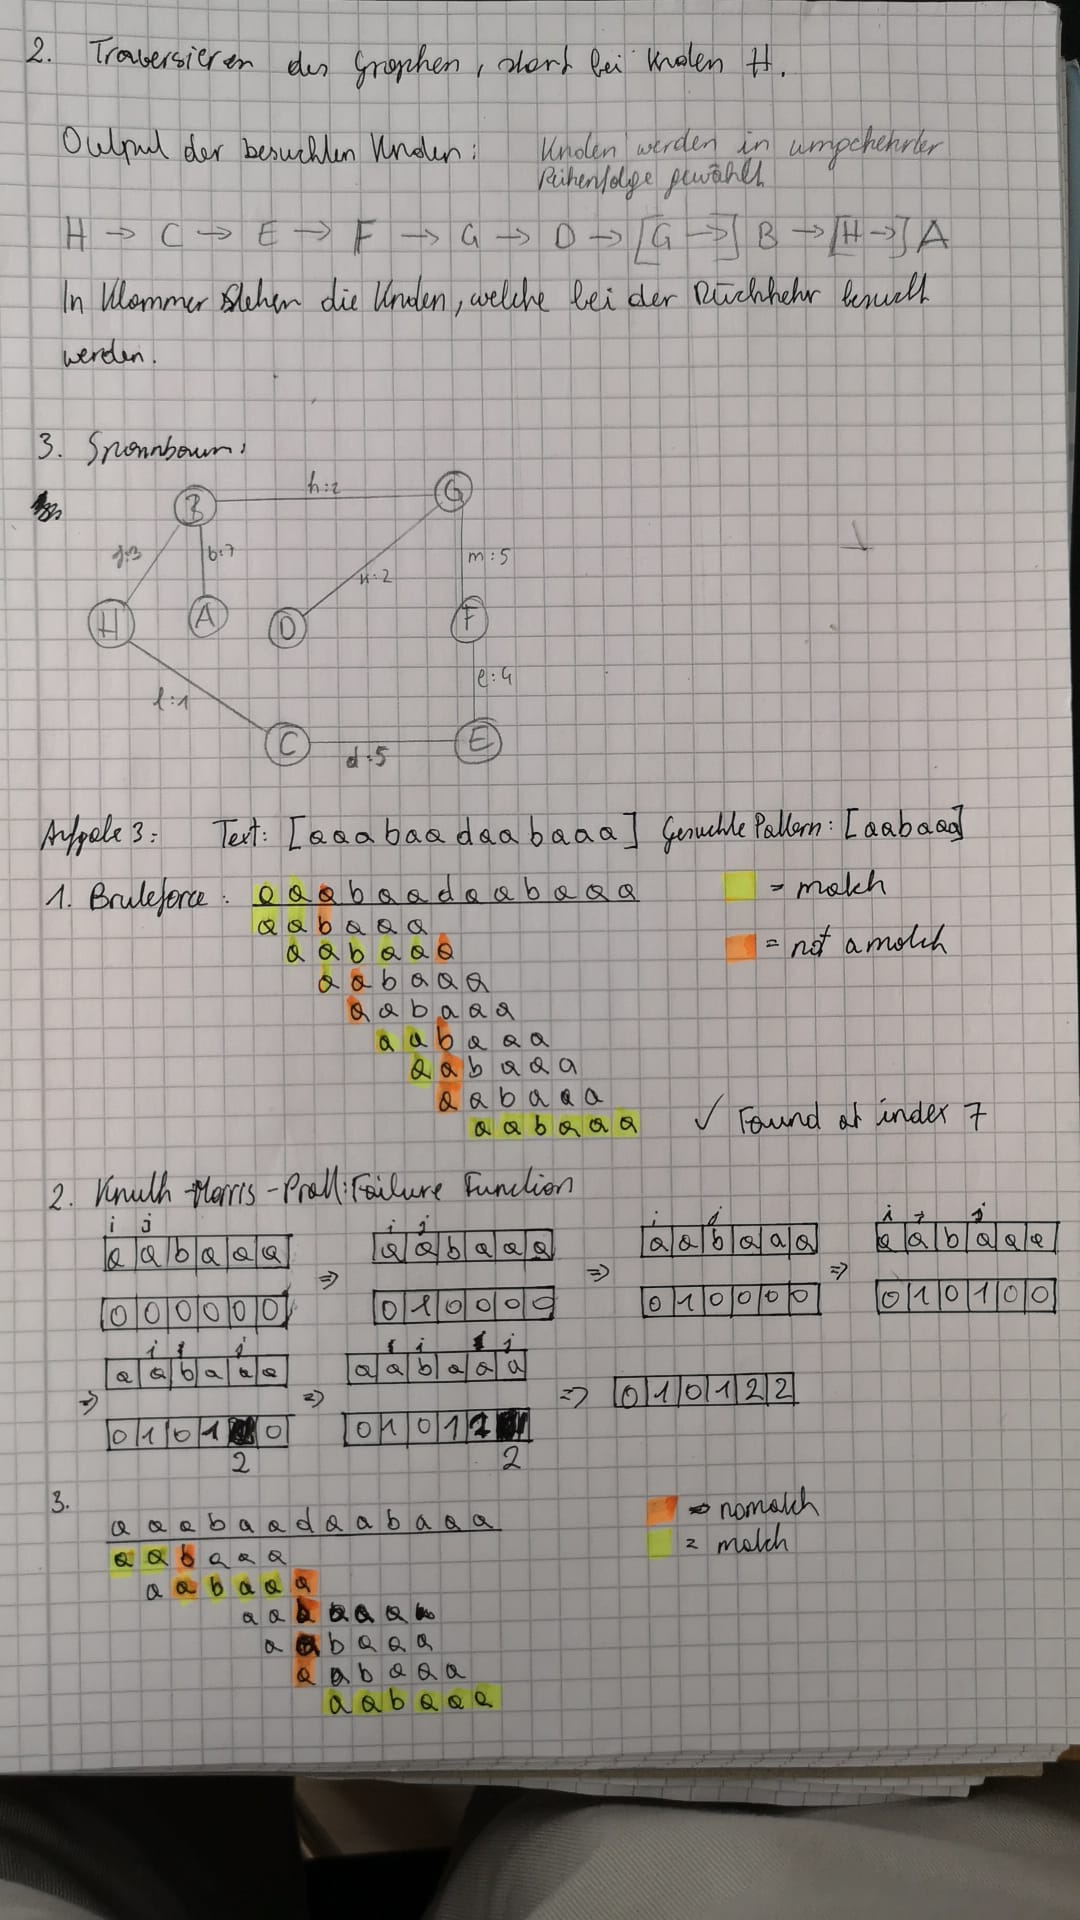 2. Traversieren des Graphen, start bei Knoten H.
Output der besuchten Knoten: Knoten werden in umgekehrter
Reihenfolge gewählt
H → C → E → F → G → D → [G →] B → [H →] A
In Klammer stehen die Knoten, welche bei der Rückkehr besucht
werden.
3. Spannbaum:
B h:2 G
j:3 b:7 n:2 m:5
H A D F
l:1 e:4
C d:5 E
Aufgabe 3: Text: [aaabaadaabaaa] Gesuchte Pattern: [aabaaa]
1. Bruteforce: a a a b a a d a a b a a a = match
a a b a a a
a a b a a a = not a match
a a b a a a
a a b a a a
a a b a a a
a a b a a a
a a b a a a
a a b a a a ✓ Found at index 7
2. Knuth-Morris-Pratt: Failure Function
i j i j i j i j
a a b a a a a a b a a a a a b a a a a a b a a a
0 0 0 0 0 0 ⇒ 0 1 0 0 0 0 ⇒ 0 1 0 0 0 0 ⇒ 0 1 0 1 0 0
a a b a a a a a b a a a
⇒ 0 1 0 1 0 ⇒ 0 1 0 1 2 ⇒ 0 1 0 1 2 2
2 2
3.
a a a b a a d a a b a a a → nomatch
a a b a a a = match
a a b a a a
a a b a a a
a a b a a a
a a b a a a
a a b a a a